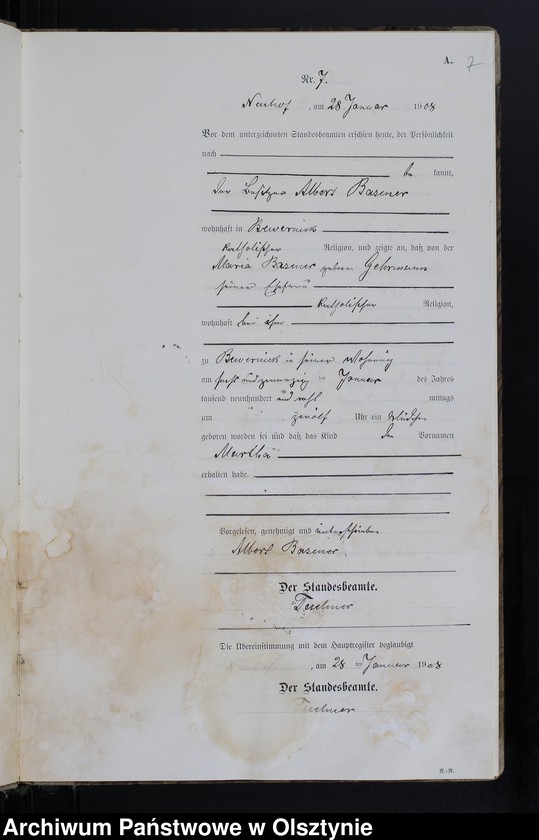 A.
7
Nr. 7.
Neuhof, am 28 Januar 1908
Vor dem unterzeichneten Standesbeamten erschien heute, der Persönlichkeit
nach
be kannt,
der Besitzer Albert Basener
wohnhaft in Bewernick
katholischer Religion, und zeigte an, daß von der
Maria Basener geboren Gehrmann
seiner Ehefrau
katholischer Religion,
wohnhaft bei ihm
zu Bewernick in seiner Wohnung
am sechs und zwanzig ten Januar des Jahres
tausend neunhundert und acht mittags
um zwölf Uhr ein Mädchen
geboren worden sei und daß das Kind den Vornamen
Martha
erhalten habe.
Vorgelesen, genehmigt und unterschrieben
Albert Basener.
Der Standesbeamte.
Die Übereinstimmung mit dem Hauptregister beglaubigt
, am 28 ten Januar 1908
Der Standesbeamte.
R.-R.
Archiwum Państwowe w Olsztynie